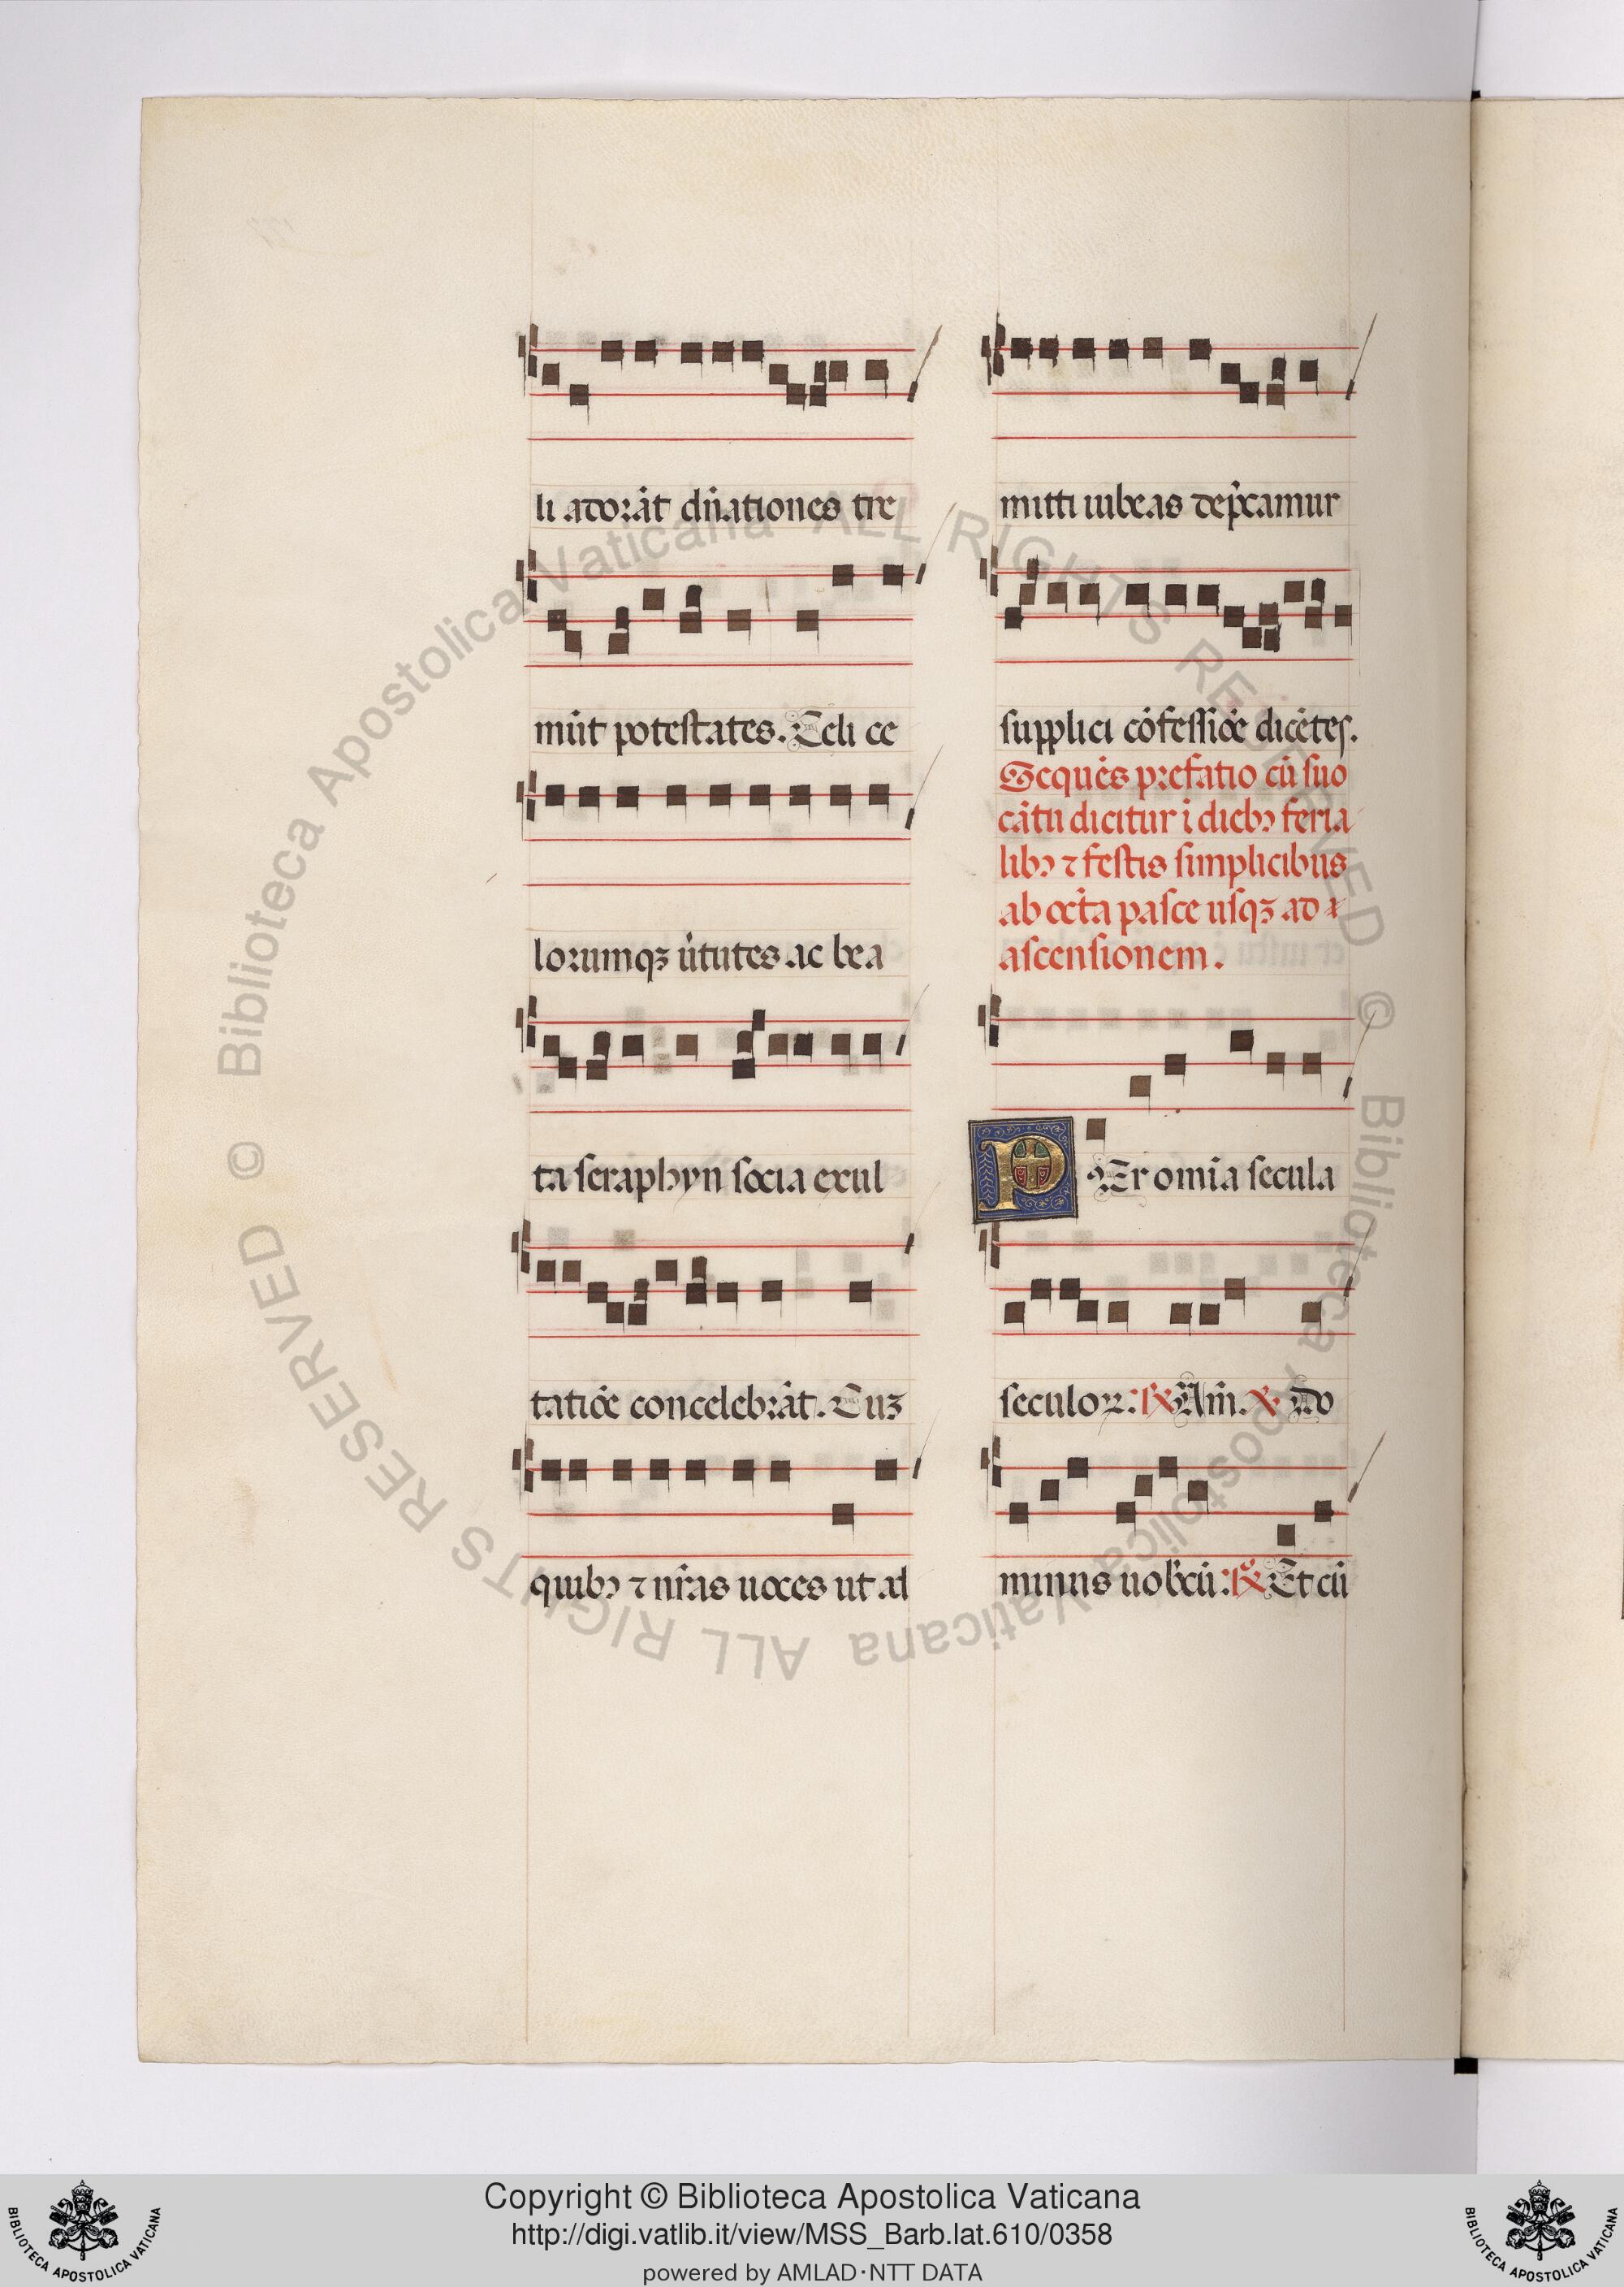 li adorāt dn̄ationes tre
mūt potestates. Celi ce
lorumqꝫ u̇tutes ac bea
ta seraphyn socia exul
tatiōe concelebrāt. Cuꝫ
quibꝰ ⁊ nr̄as uoces ut ad
mitti iubeas dep̄camur
supplici cōfessiōe dicētes.
Sequēs prefatio cū suo
cātu dicitur ī diebꝰ feria
libꝰ ⁊ festis simplicibus
ab octa pasce usqꝫ ad
ascensionem.
PEr om̄ia secula
seculoꝝ. ℟ Am̄. ℣ Do
minus uob̄cū. ℟ Et cū
© Biblioteca Apostolica Vaticana ALL RIGHTS RESERVED © Biblioteca Apostolica Vaticana ALL RIGHTS RESERVED
Copyright © Biblioteca Apostolica Vaticana
http://digi.vatlib.it/view/MSS_Barb.lat.610/0358
powered by AMLAD·NTT DATA
BIBLIOTECA APOSTOLICA VATICANA
BIBLIOTECA APOSTOLICA VATICANA